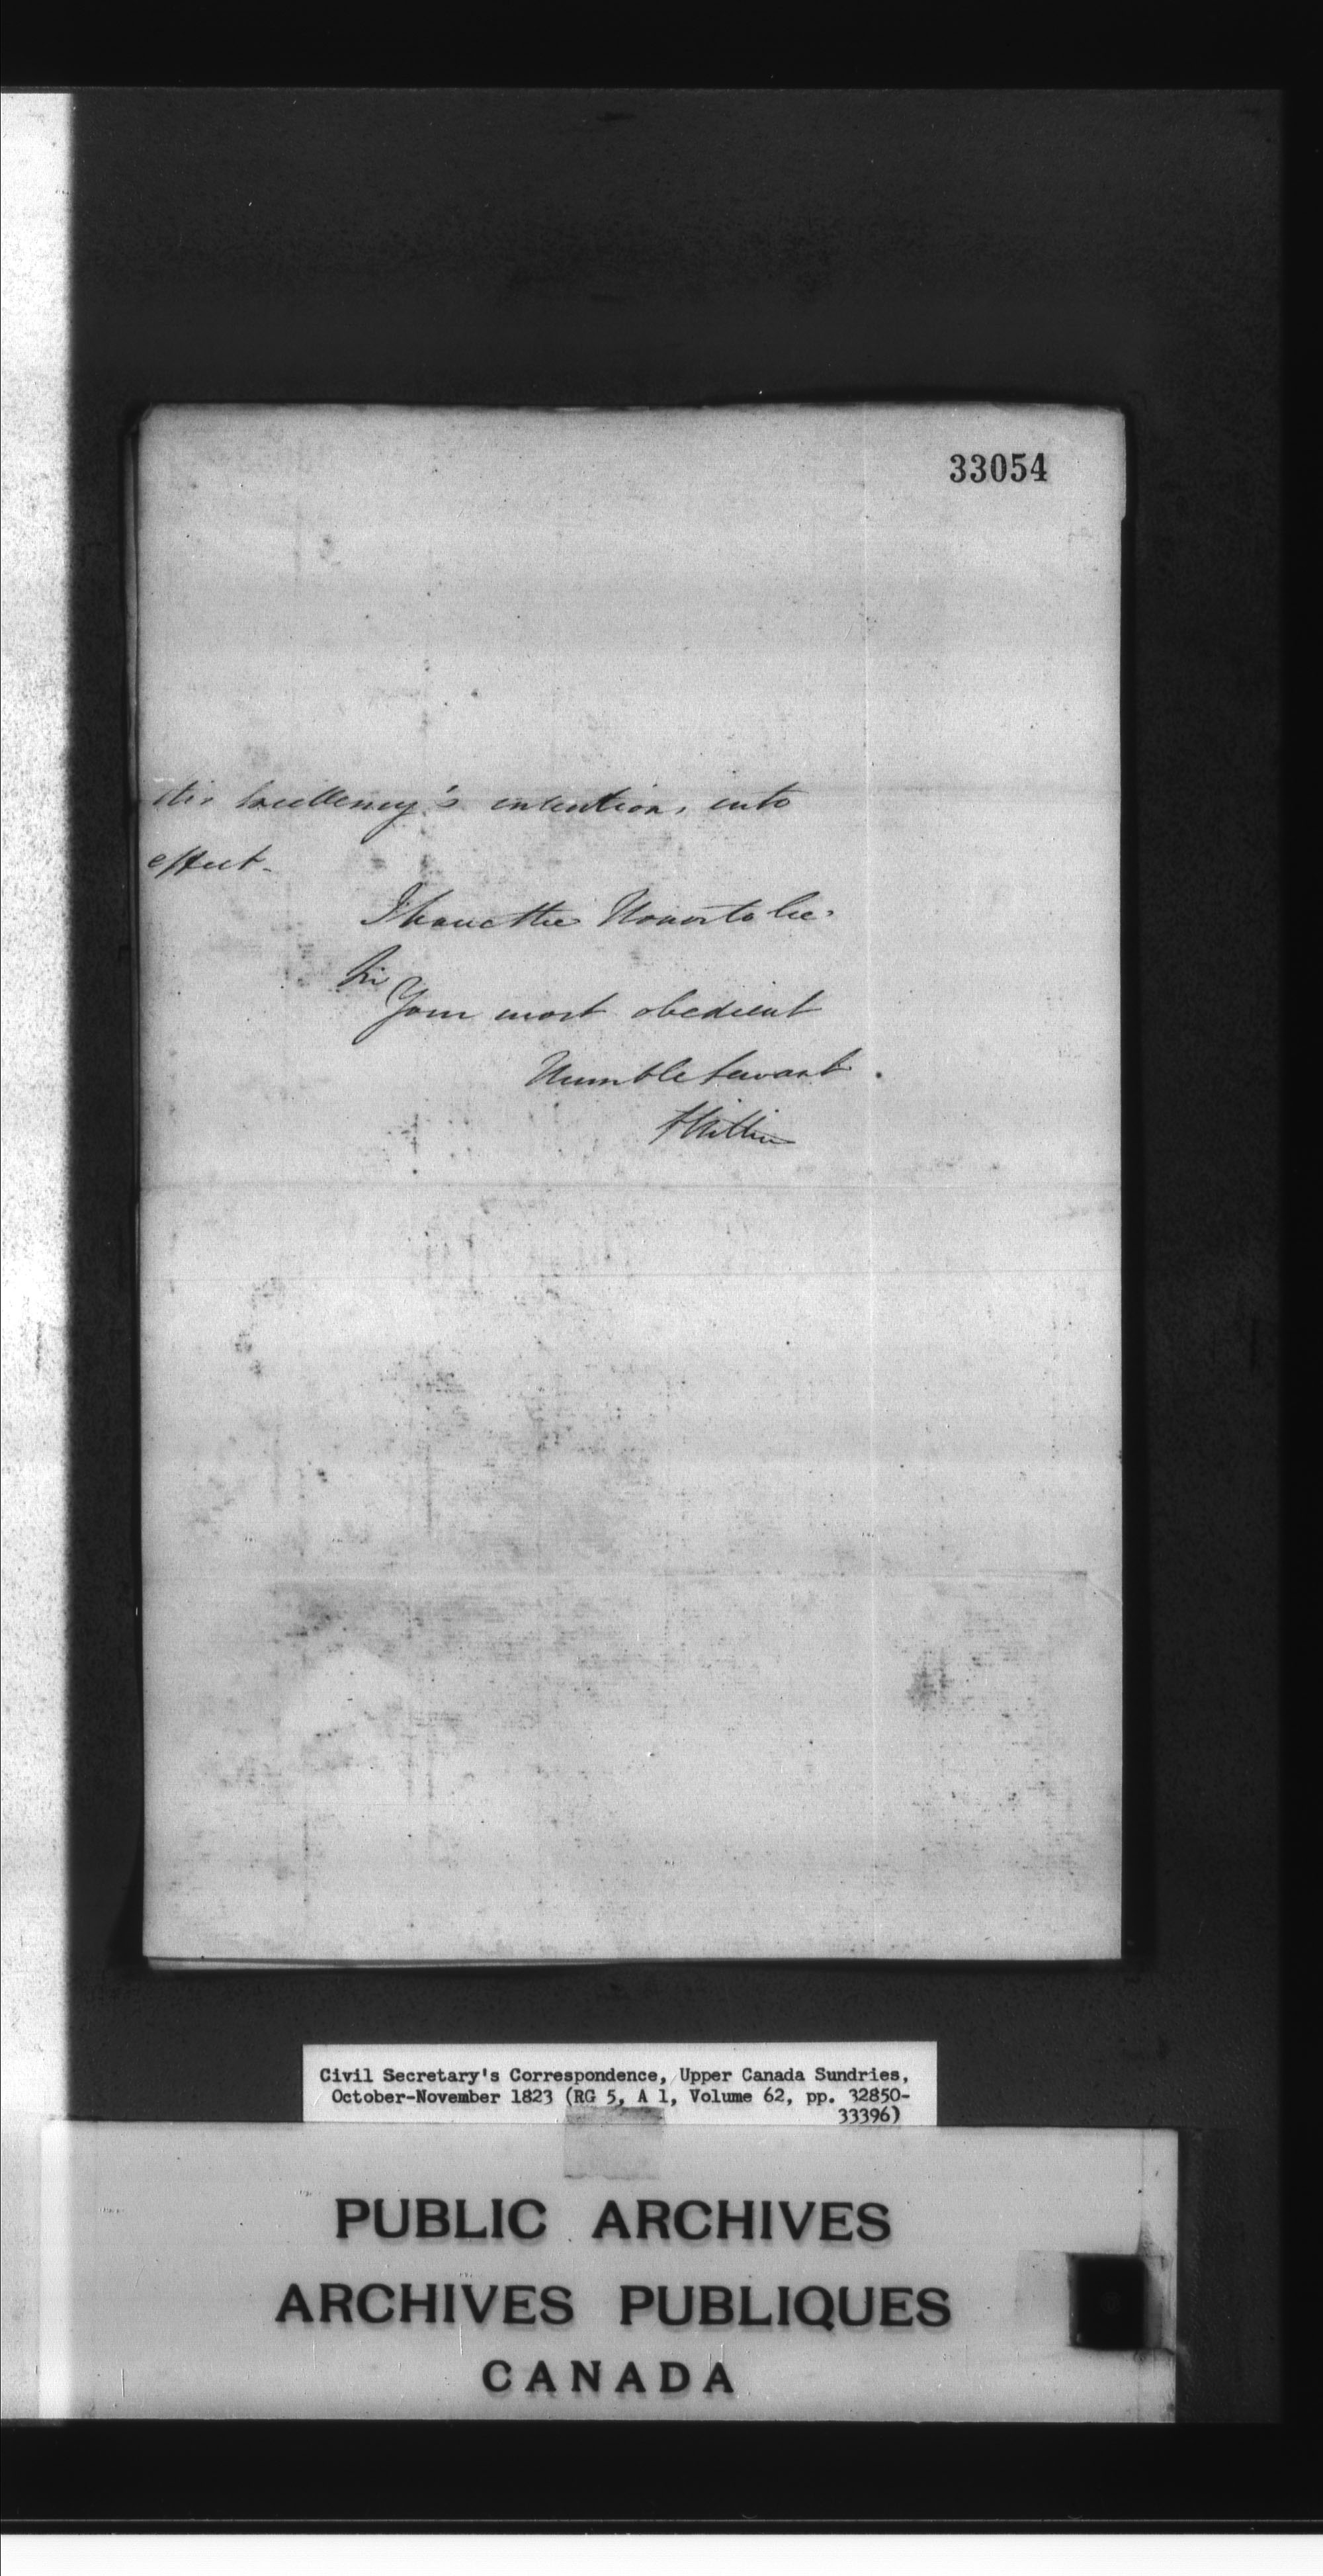 33054
His Excellency's intentions into
effect.
I have the Honor to be.
Sir
Your most obedient
Humble Servant.
Civil Secretary's Correspondence, Upper Canada Sundries,
October-November 1823 (RG 5, A 1, Volume 62, pp. 32850-
33396)
PUBLIC ARCHIVES
ARCHIVES PUBLIQUES
CANADA